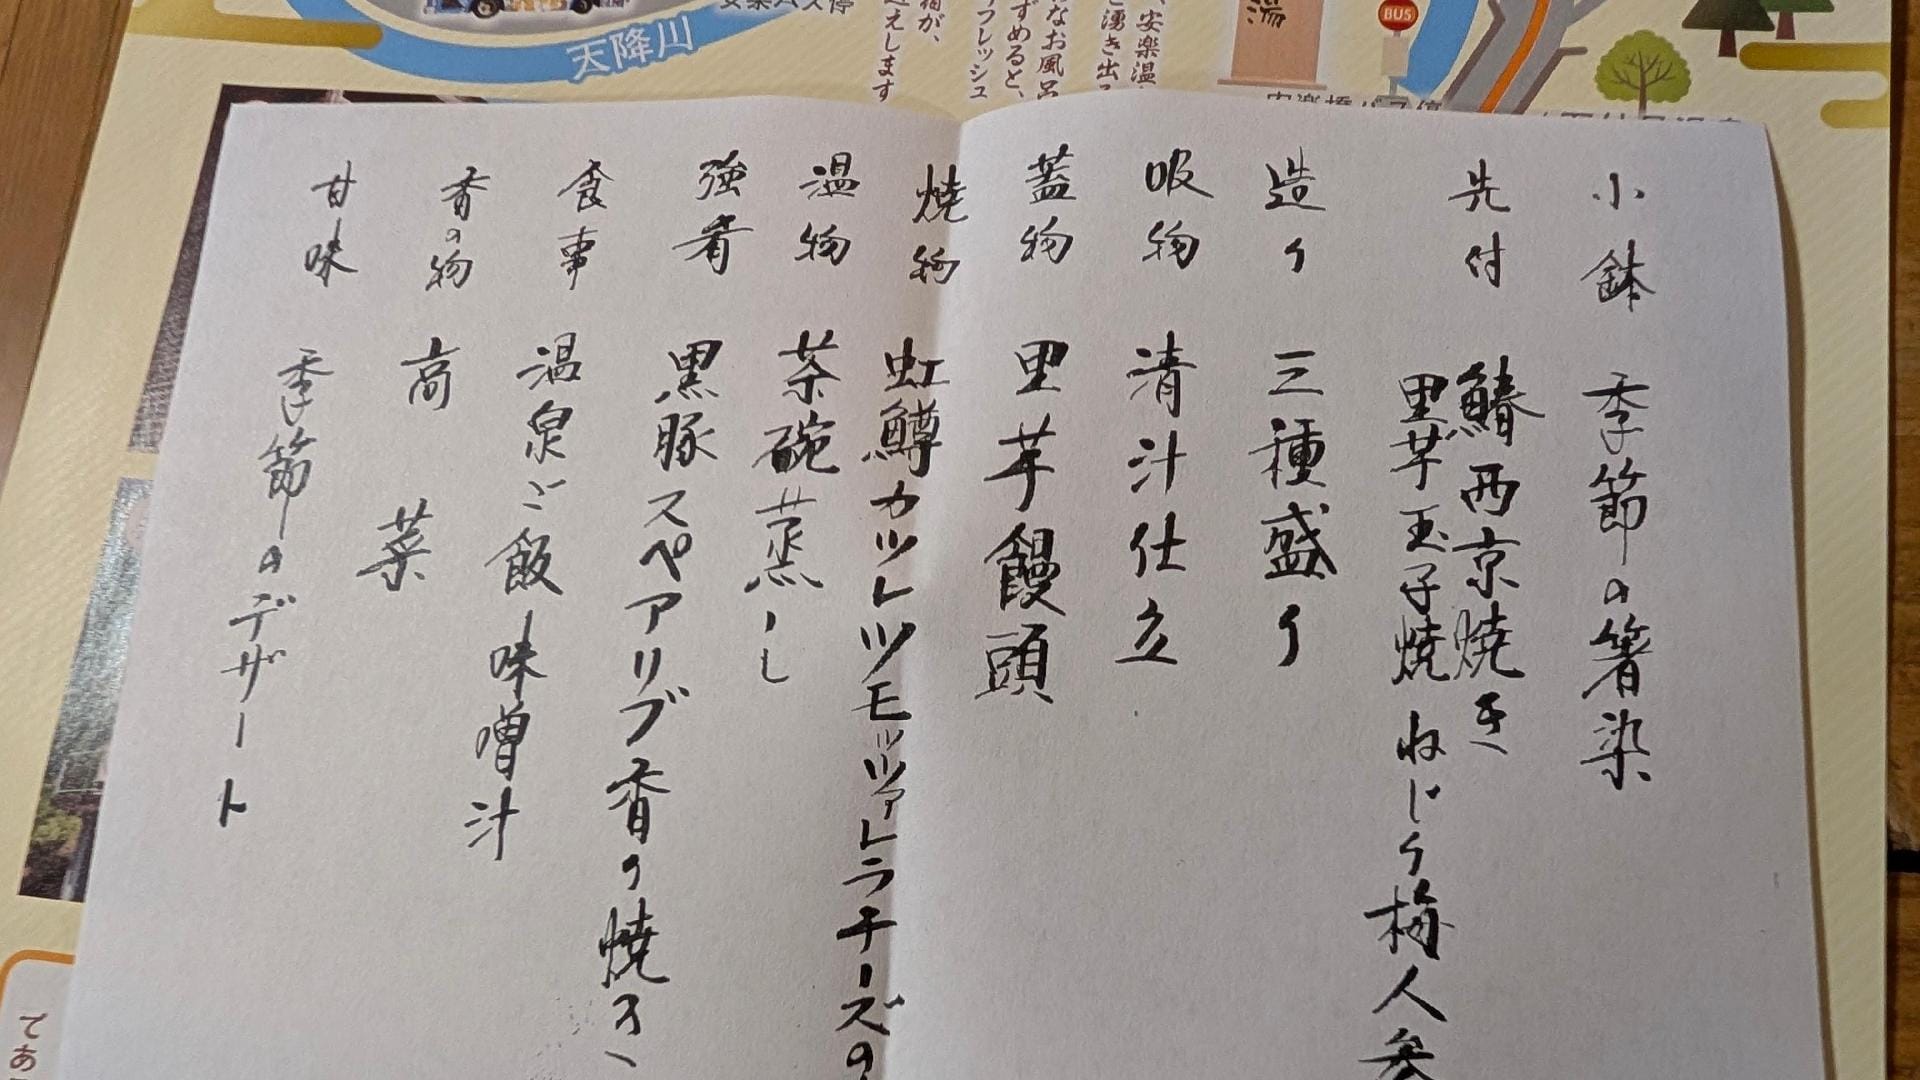 天降川
BUS
小鉢 季節の箸染
先付 鰆西京焼き
里芋玉子焼 ねじり梅人参
造り 三種盛り
吸物 清汁仕立
蓋物 里芋饅頭
焼物 虹鱒カツレツモッツァレラチーズの
温物 茶碗蒸し
強肴 黒豚スペアリブ香り焼き
食事 温泉ご飯 味噌汁
香の物 高菜
甘味 季節のデザート